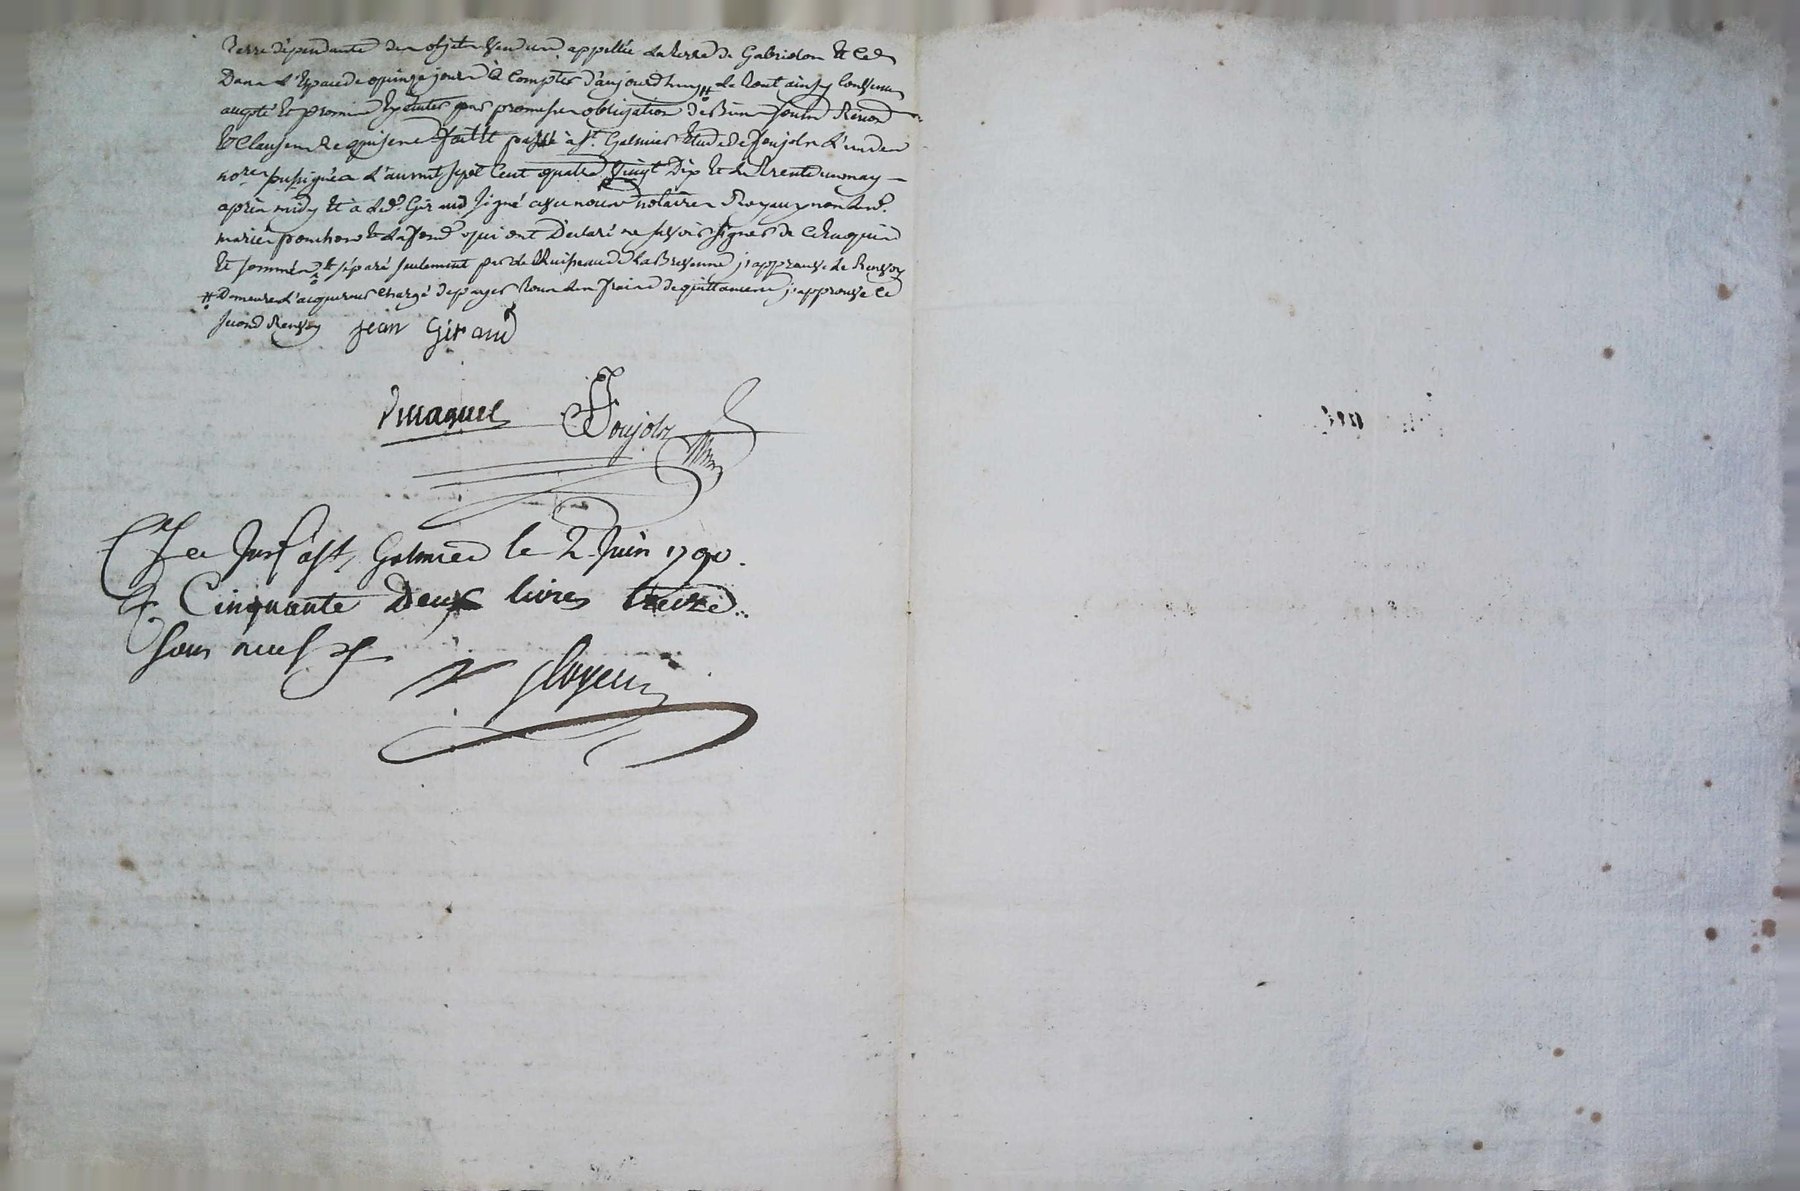 terre dépendante des objets vendus appellée la terre de Gabriolon et ce
Dans l'Espace de quinze jours à compter d'aujourd'huy # le tout ainsy convenu
accepté et promis Exécuter par promesse obligation de Biens soumis Renon
et clauses Requises fait et passé à St. Galmier Etude de Foujols l'un des
nores soussignés l'an mil sept cent quatre vingt Dix et le trente un may
après midy et a led. Girard signé avec nous notaires Royaux non lesd.
mariés ponchon et Lafond qui ont Déclaré ne savoir signer de ce Enquis
et sommés et séparé seulement par le Ruisseau de la j'approuve le Renvoy
# Demeure l'acquereur chargé de payer tous les frais de quittances j'approuve le
second Renvoy jean Girard
Foujols
a St. Galmier le 2 Juin 1790.
Cinquante Deux livres treize
sous neuf